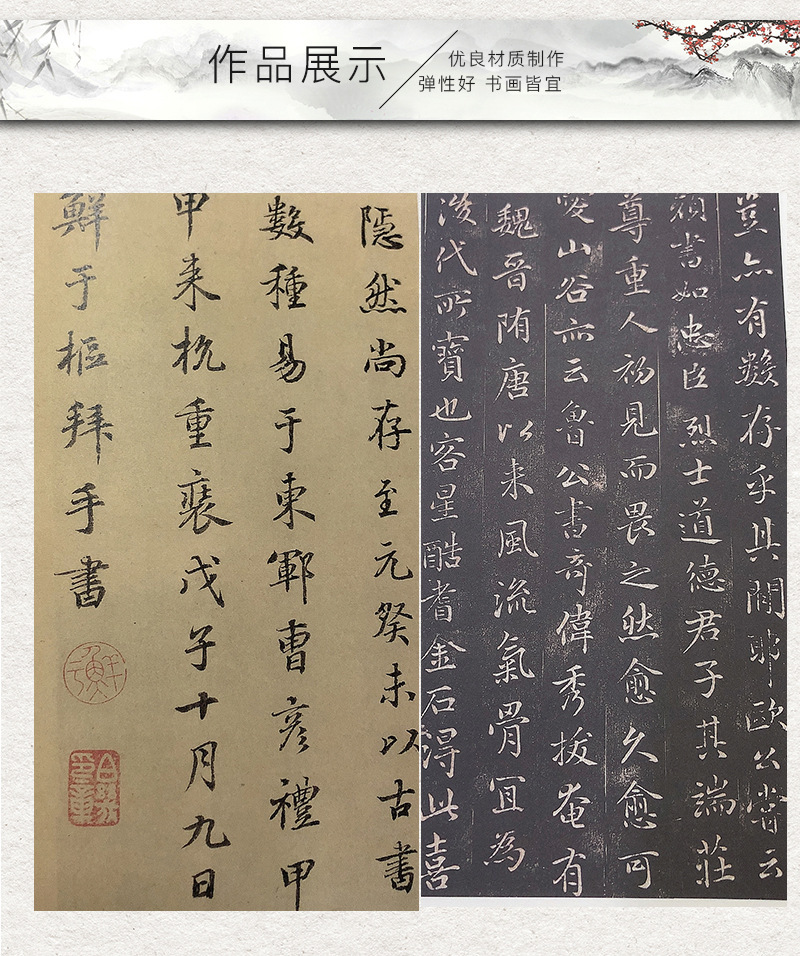 作品展示
优良材质制作
弹性好 书画皆宜
隱然尚存至元癸未以古書
數種易于東鄆曹彦禮甲
申来杭重裝戊子十月九日
鮮于樞拜手書
鮮于
豈亦有數存乎其間耶歐公嘗云
顔書如忠臣烈士道德君子其端莊
尊重人初見而畏之然愈久愈可
愛山谷亦云魯公書奇偉秀拔奄有
魏晋隋唐以来風流氣骨冝為
後代所寶也容星酷耆金石得此喜